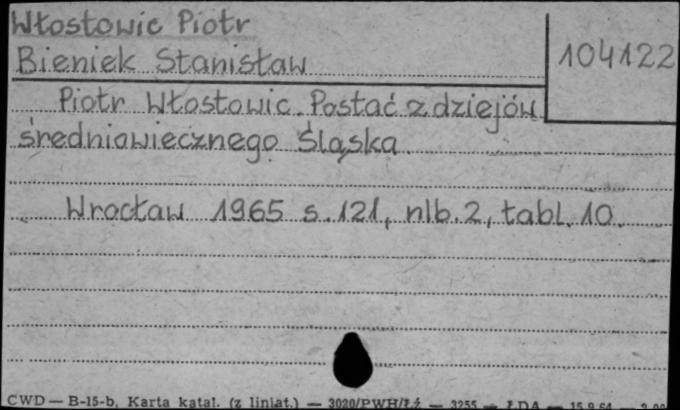 Włostowic Piotr
Bieniek Stanisław
104122
Piotr Włostowic. Postać z dziejów
średniowiecznego Śląska
Wrocław 1965 s. 121, nlb. 2, tabl. 10.
CWD — B-15-b. Karta katal. (z liniat.) — 3020/PWH/Łź — 3255 — ŁDA —